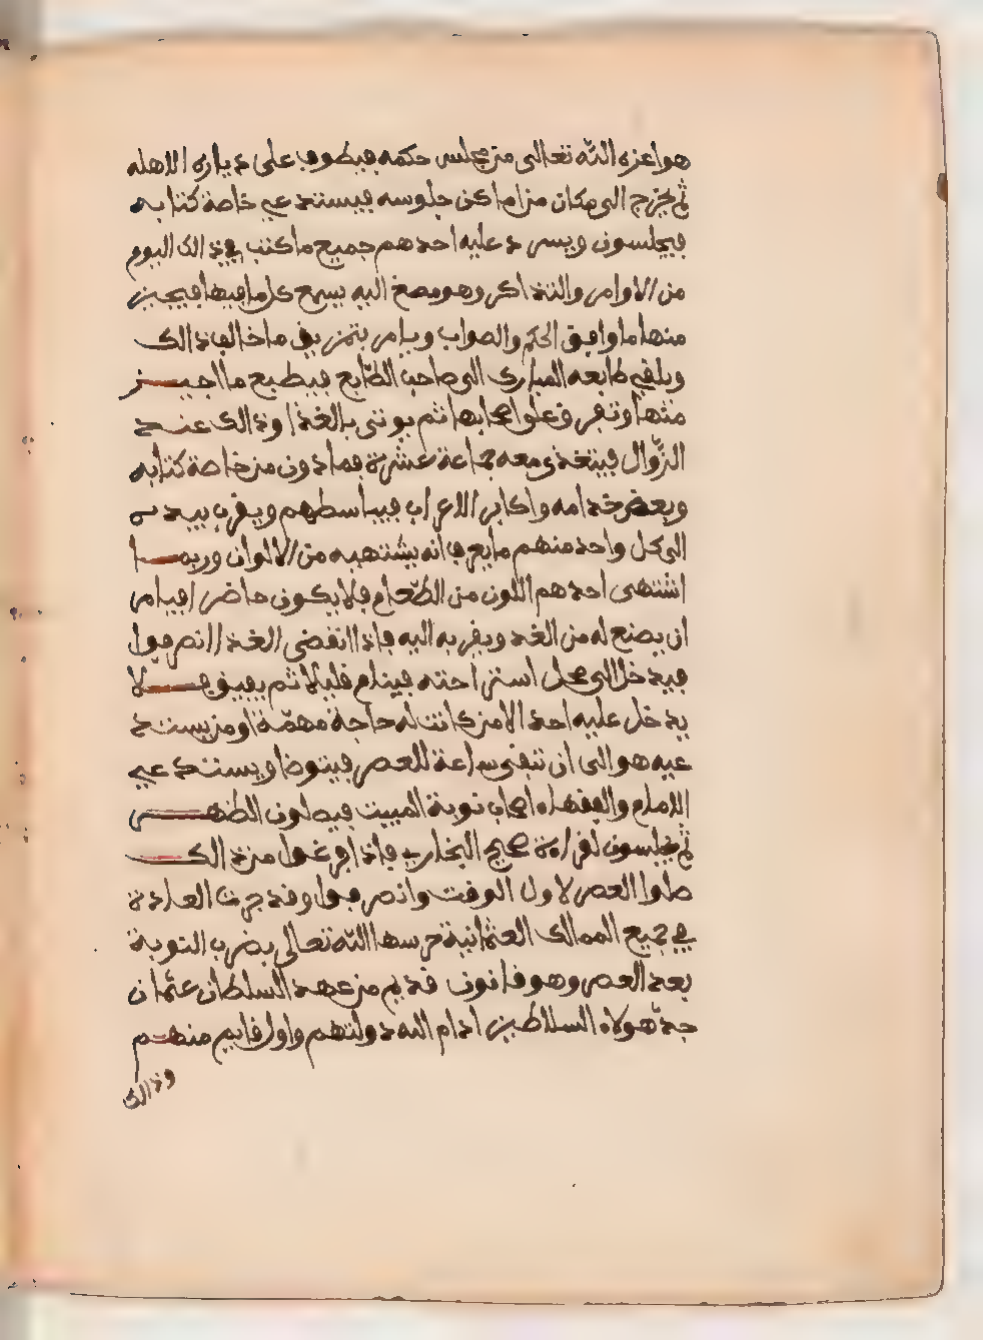 هو اعزه الله تعالى من مجلس حكمه فيطوف على دياره الاهله
ثم يخرج الى مكان من اماكن جلوسه فيستدعي خاصة كتابه
فيجلسون ويسرد عليه احدهم جميع ما كتب في ذالك اليوم
من الاوامر والتذاكر وهو مصغ اليه يسمع كل ما فيها فيجيز
منها ما وافق الحكم والصواب ويامر بتمزيق ما خالف ذالك
ويلقي طابعه المبارك الى صاحب الطابع فيطبع ما اجيز
منها وتفرق على اصحابها ثم يوتى بالغذا وذالك عند
الزوال فيتغذى معه جماعة عشرة فما دون من خاصة كتابه
وبعض خدامه واكابر الاعراب فيباسطهم ويقرب بيده
الى كل واحد منهم ما يعرف انه يشتهيه من الالوان وربما
اشتهى احدهم اللون من الطعام فلا يكون حاضرا فيامر
ان يصنع له من الغد ويقربه اليه فاذا انقضى الغذا انصرفوا
فيدخل الى محل استراحته فينام قليلا ثم يفيق فلا
يدخل عليه احد الا من كانت له حاجة مهمة او من يستد
عيه هو الى ان تبقى ساعة للعصر فيتوضا ويستدعي
الامام والفقهاء اصحاب نوبة المبيت فيصلون الظهر
ثم يجلسون لقراءة صحيح البخاري فاذا فرغوا من ذالك
صلوا العصر لاول الوقت وانصرفوا وقد جرت العادة
في جميع الممالك العثمانية حرسها الله تعالى بضرب النوبة
بعد العصر وهو قانون قديم من عهد السلطان عثمان
جد هولاء السلاطين ادام الله دولتهم واول قايم منهم
وذالك